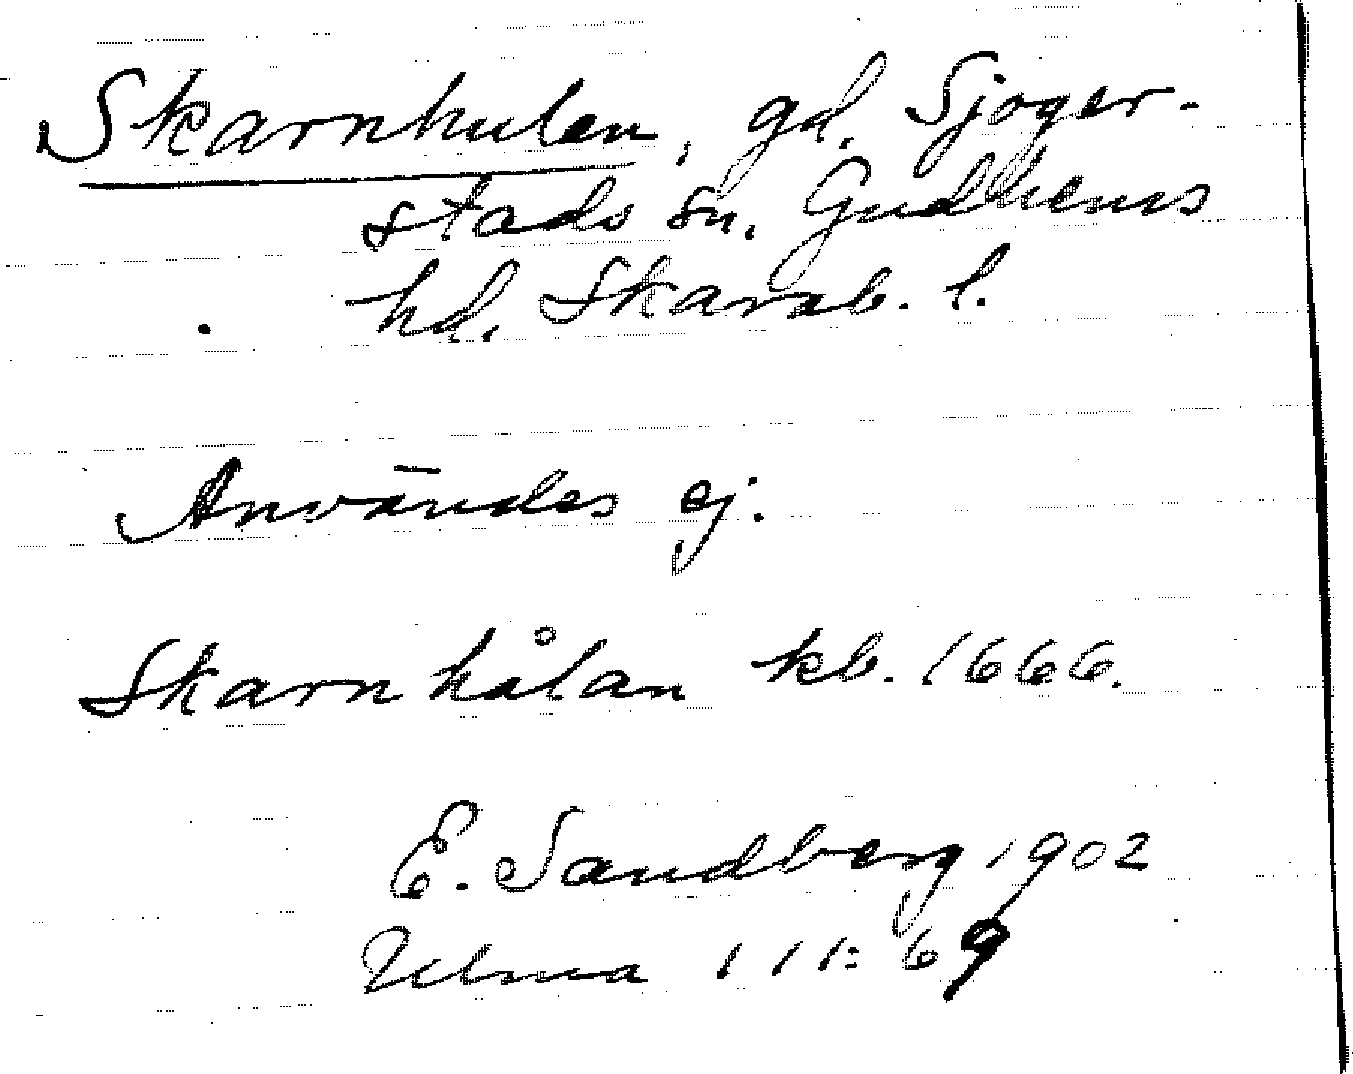 Skarnhulen, gd, Sjoger-
stads sn, Gudhems
hd, Skarab. l.
Användes ej.
Skarnhålan kb. 1666.
E. Sandberg 1902
Ulma 111:69